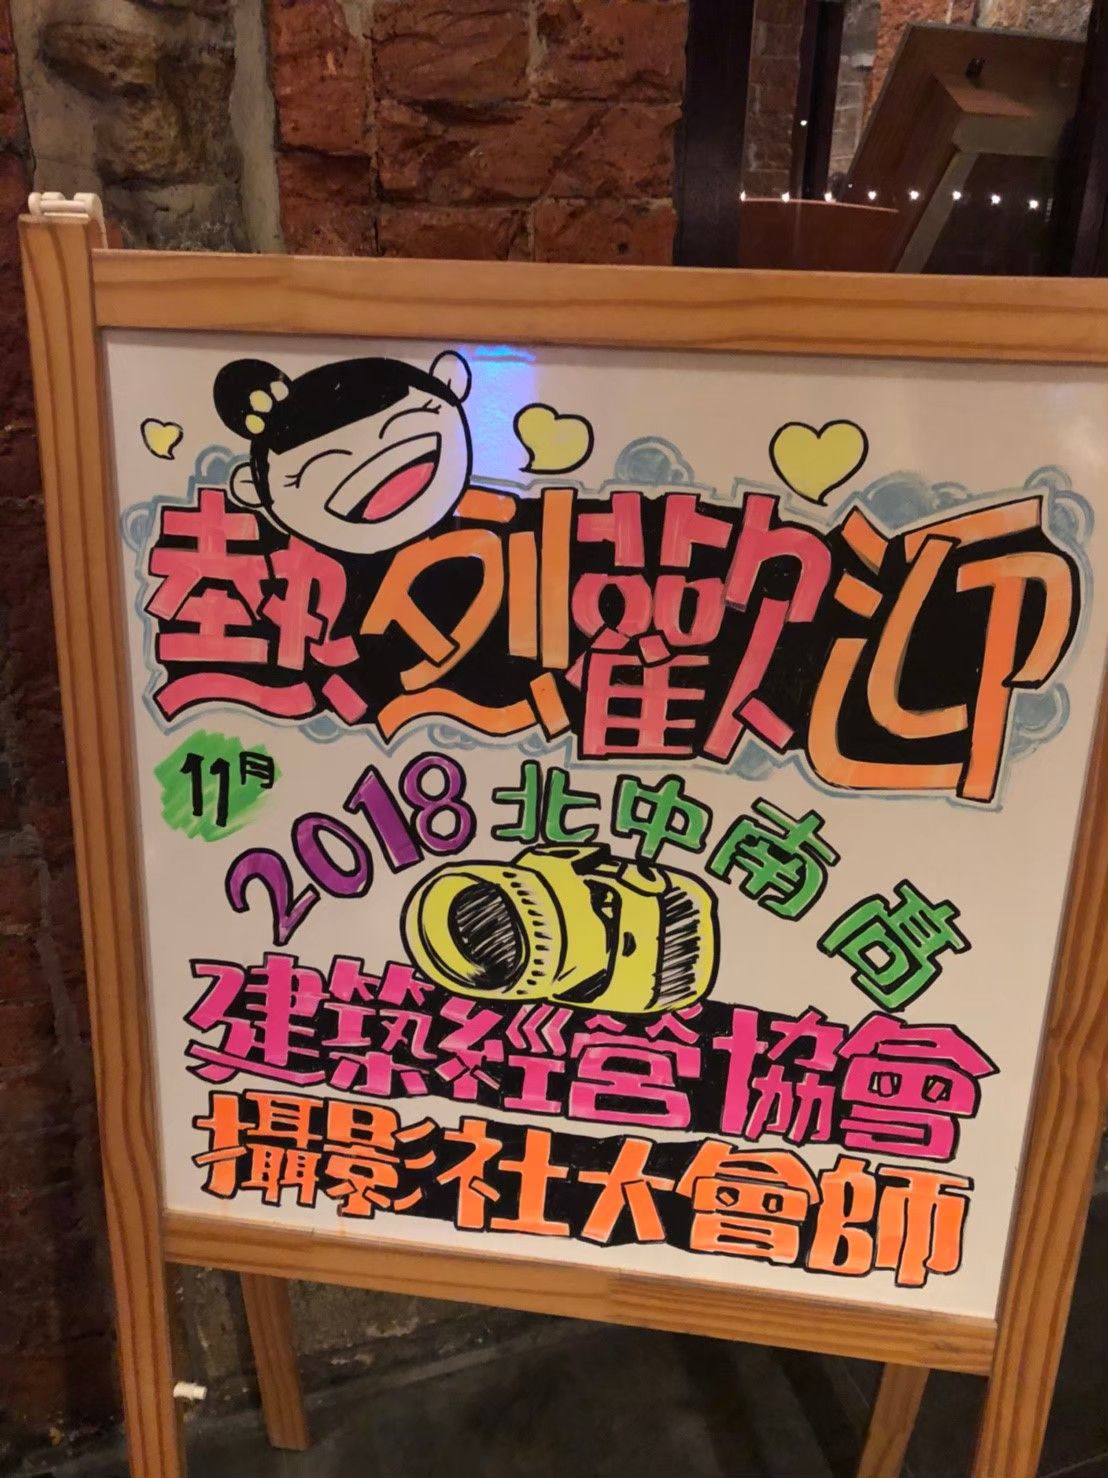 熱烈歡迎
11月
2018北中南高
建築經營協會
攝影社大會師